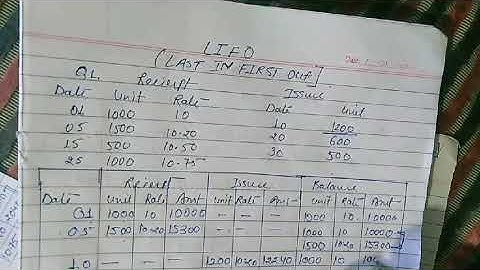 LIFO
[LAST IN FIRST OUT]
Q1. Receipt Issue
Date Unit Rate Date Unit
01 1000 10 10 1200
05 1500 10.20 20 600
15 500 10.50 30 500
25 1000 10.75
Receipt Issue Balance
Date Unit Rate Amt Unit Rate Amt Unit Rate Amt
01 1000 10 10000 — — — 1000 10 10000
05 1500 10.20 15300 — — — 1000 10 10000
1500 10.20 15300
10 — — — 1200 10.20 12240 1000 10